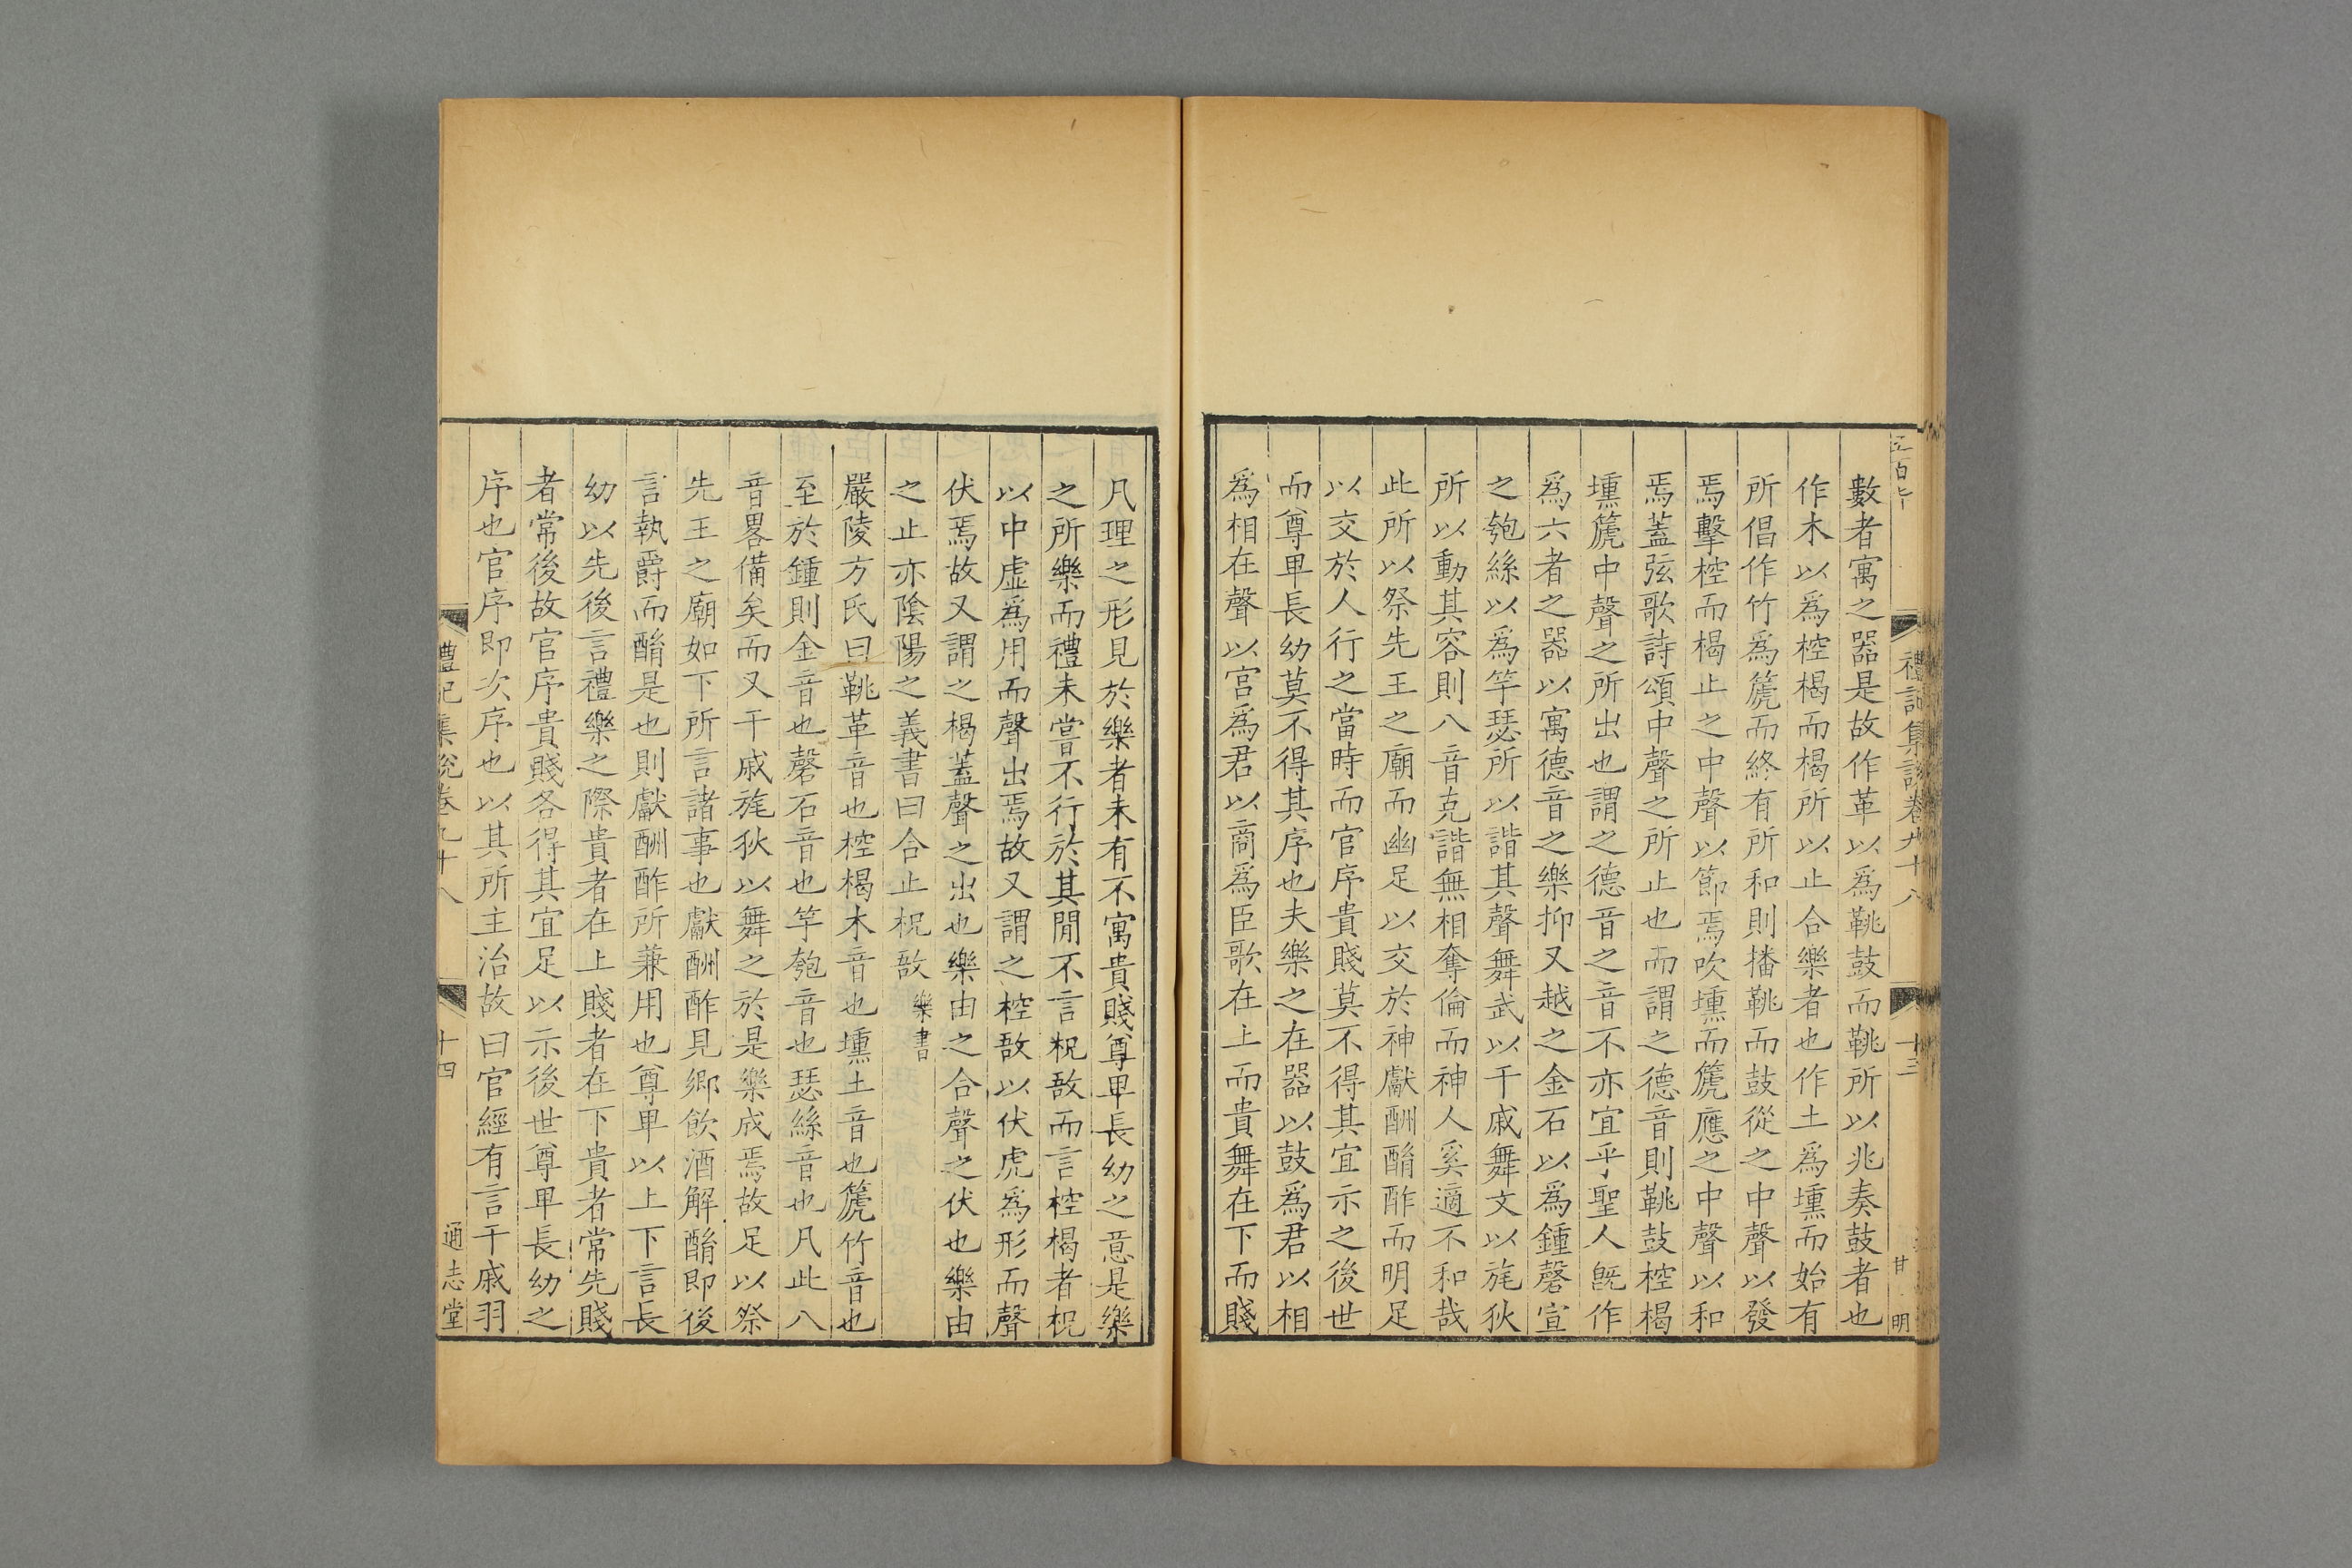 禮記集說卷九十八
十三
甘 明
數者寓之器是故作革以爲鞉鼓而鞉所以兆奏鼓者也
作木以爲椌楬而楬所以止合樂者也作土爲壎而始有
所倡作竹爲篪而終有所和則播鞉而鼓從之中聲以發
焉擊椌而楬止之中聲以節焉吹壎而篪應之中聲以和
焉蓋弦歌詩頌中聲之所止也而謂之德音則鞉鼓椌楬
壎篪中聲之所出也謂之德音之音不亦宜乎聖人旣作
爲六者之器以寓德音之樂抑又越之金石以爲鍾磬宣
之匏絲以爲竽瑟所以諧其聲舞武以干戚舞文以旄狄
所以動其容則八音克諧無相奪倫而神人奚適不和哉
此所以祭先王之廟而幽足以交於神獻酬酳酢而明足
以交於人行之當時而官序貴賤莫不得其宜示之後世
而尊卑長幼莫不得其序也夫樂之在器以鼓爲君以相
爲相在聲以宮爲君以商爲臣歌在上而貴舞在下而賤
凡理之形見於樂者未有不寓貴賤尊卑長幼之意是樂
之所樂而禮未嘗不行於其閒不言柷敔而言椌楬者柷
以中虛爲用而聲出焉故又謂之椌敔以伏虎爲形而聲
伏焉故又謂之楬蓋聲之出也樂由之合聲之伏也樂由
之止亦陰陽之義書曰合止柷敔 樂書
嚴陵方氏曰鞉革音也椌楬木音也壎土音也篪竹音也
至於鍾則金音也磬石音也竽匏音也瑟絲音也凡此八
音畧備矣而又干戚旄狄以舞之於是樂成焉故足以祭
先王之廟如下所言諸事也獻酬酢見鄉飲酒解酳即後
言執爵而酳是也則獻酬酢所兼用也尊卑以上下言長
幼以先後言禮樂之際貴者在上賤者在下貴者常先賤
者常後故官序貴賤各得其宜足以示後世尊卑長幼之
序也官序即次序也以其所主治故曰官經有言干戚羽
禮記集說卷九十八
十四
通志堂